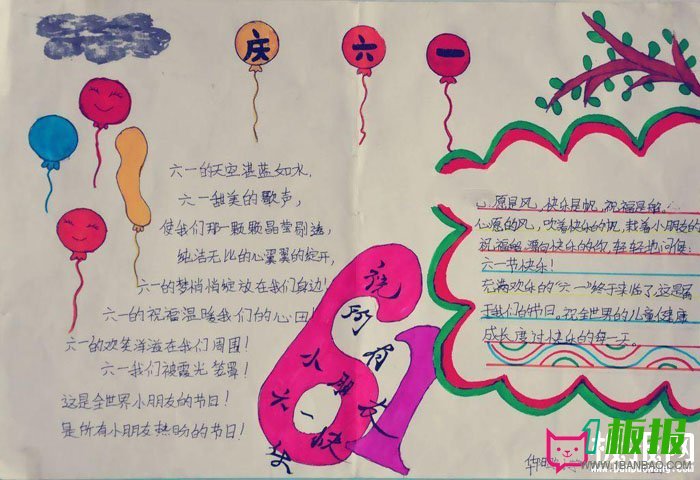 庆六一
六一的天空湛蓝如水,
六一甜美的歌声,
使我们那一颗颗晶莹剔透,
纯洁无比的心翼翼的绽开,
六一的梦悄悄绽放在我们身边!
六一的祝福温暖我们的心田!
六一的欢笑洋溢在我们周围!
六一我们被霞光笼罩!
这是全世界小朋友的节日!
是所有小朋友热盼的节日!
祝
所有
小朋友
六一快
乐
61
心愿是风,快乐是帆,祝福是船,
心愿的风,吹着快乐的帆,载着小朋友的
祝福船,漂向快乐的你,轻轻地问候:
六一节快乐!
充满欢乐的“六一”终于来临了,这是属
于我们的节日,祝全世界的儿童健康
成长,度过快乐的每一天。
1板报
WWW.1BANBAO.COM